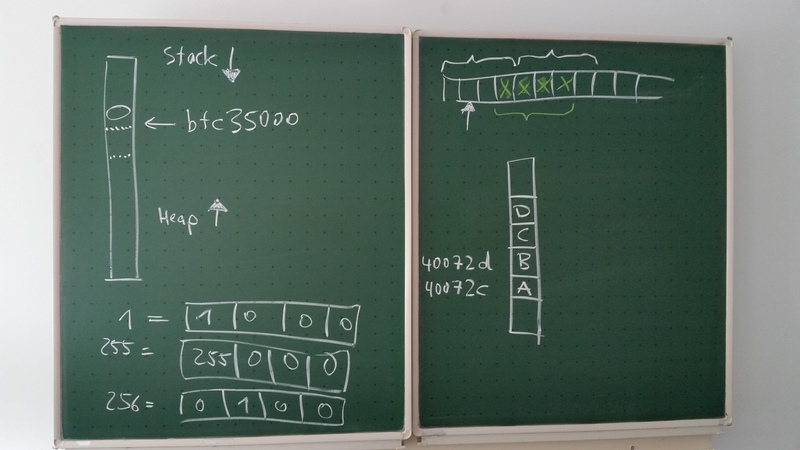 Stack ↓
← bfc35000
Heap ↑
1 = 1 0 0 0
255 = 255 0 0 0
256 = 0 1 0 0
X X X X
D
C
40072d B
40072c A